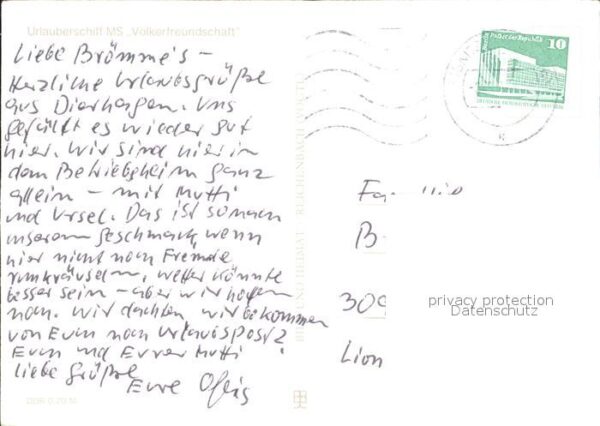 Urlauberschiff MS „Völkerfreundschaft"
Liebe Brömme's –
Herzliche Urlaubsgrüße
aus Dierhagen. Uns
gefällt es wieder gut
hier. Wir sind hier in
dem Betriebsheim ganz
allein – mit Mutti
und Ursel. Das ist so nach
unserem Geschmack, wenn
hier nicht noch Fremde
rumkräuseln, Wetter könnte
besser sein – aber wir hoffen
noch. Wir dachten, wir bekommen
von Euch noch Urlaubspost?
Euch und Eurer Mutti
liebe Grüße
Eure
Berlin, Palast der Republik
10
Fa
B
309
Lion
privacy protection
Datenschutz
BILD UND HEIMAT REICHENBACH (VOGTL)
DDR 0,20 M